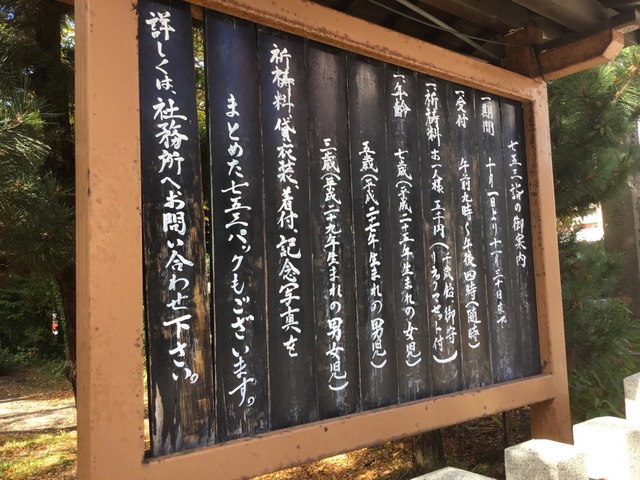 七五三詣の御案内
一期間 十月一日より十一月三十日まで
一受付 午前九時~午後四時(随時)
一祈祷料 お一人様、五千円
一年齢 七歳(平成二十五年生まれの女児)
五歳(平成二十七年生まれの男児)
三歳(平成二十九年生まれの男女児)
祈祷料、貸衣装、着付、記念写真を
まとめた七五三パックもございます。
詳しくは、社務所へお問い合わせ下さい。